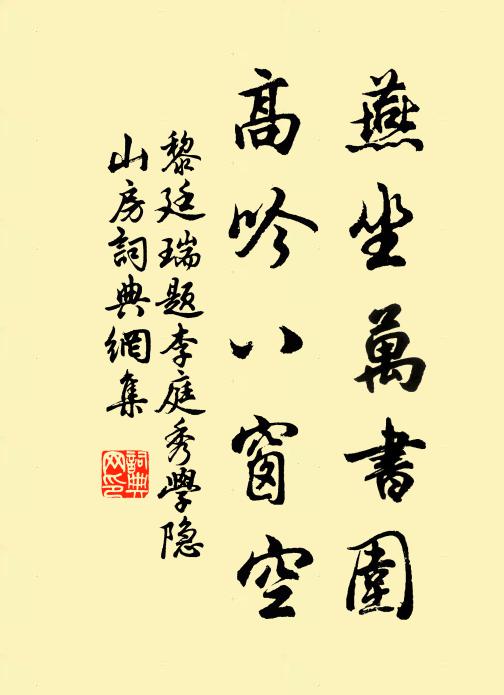 燕坐萬書圍
高吟八窗空
黎廷瑞題李庭秀學隐
山房詞典網集
詞典网印